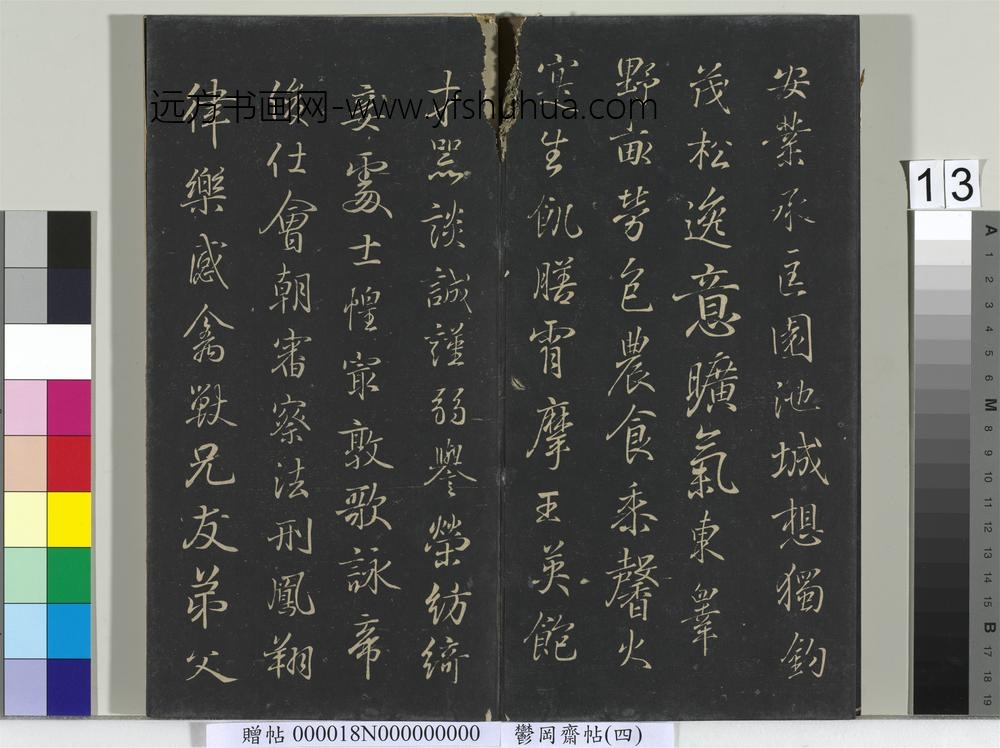 安業承匡園池城想獨釣
茂松逸意曠氣東皋
野畝勞包農食黍馨火
寒生飢膳宵摩王英飽
才器談誠謹弱譽榮紡綺
妄處士惶寂敦歌詠帝
俊仕會朝審察法刑鳳翔
律樂感禽獸兄友弟父
远方书画网-www.yfshuhua.com
13
A
1
2
3
4
5
6
M
8
9
10
11
12
13
14
15
B
17
18
19
贈帖 000018N000000000 鬱岡齋帖(四)